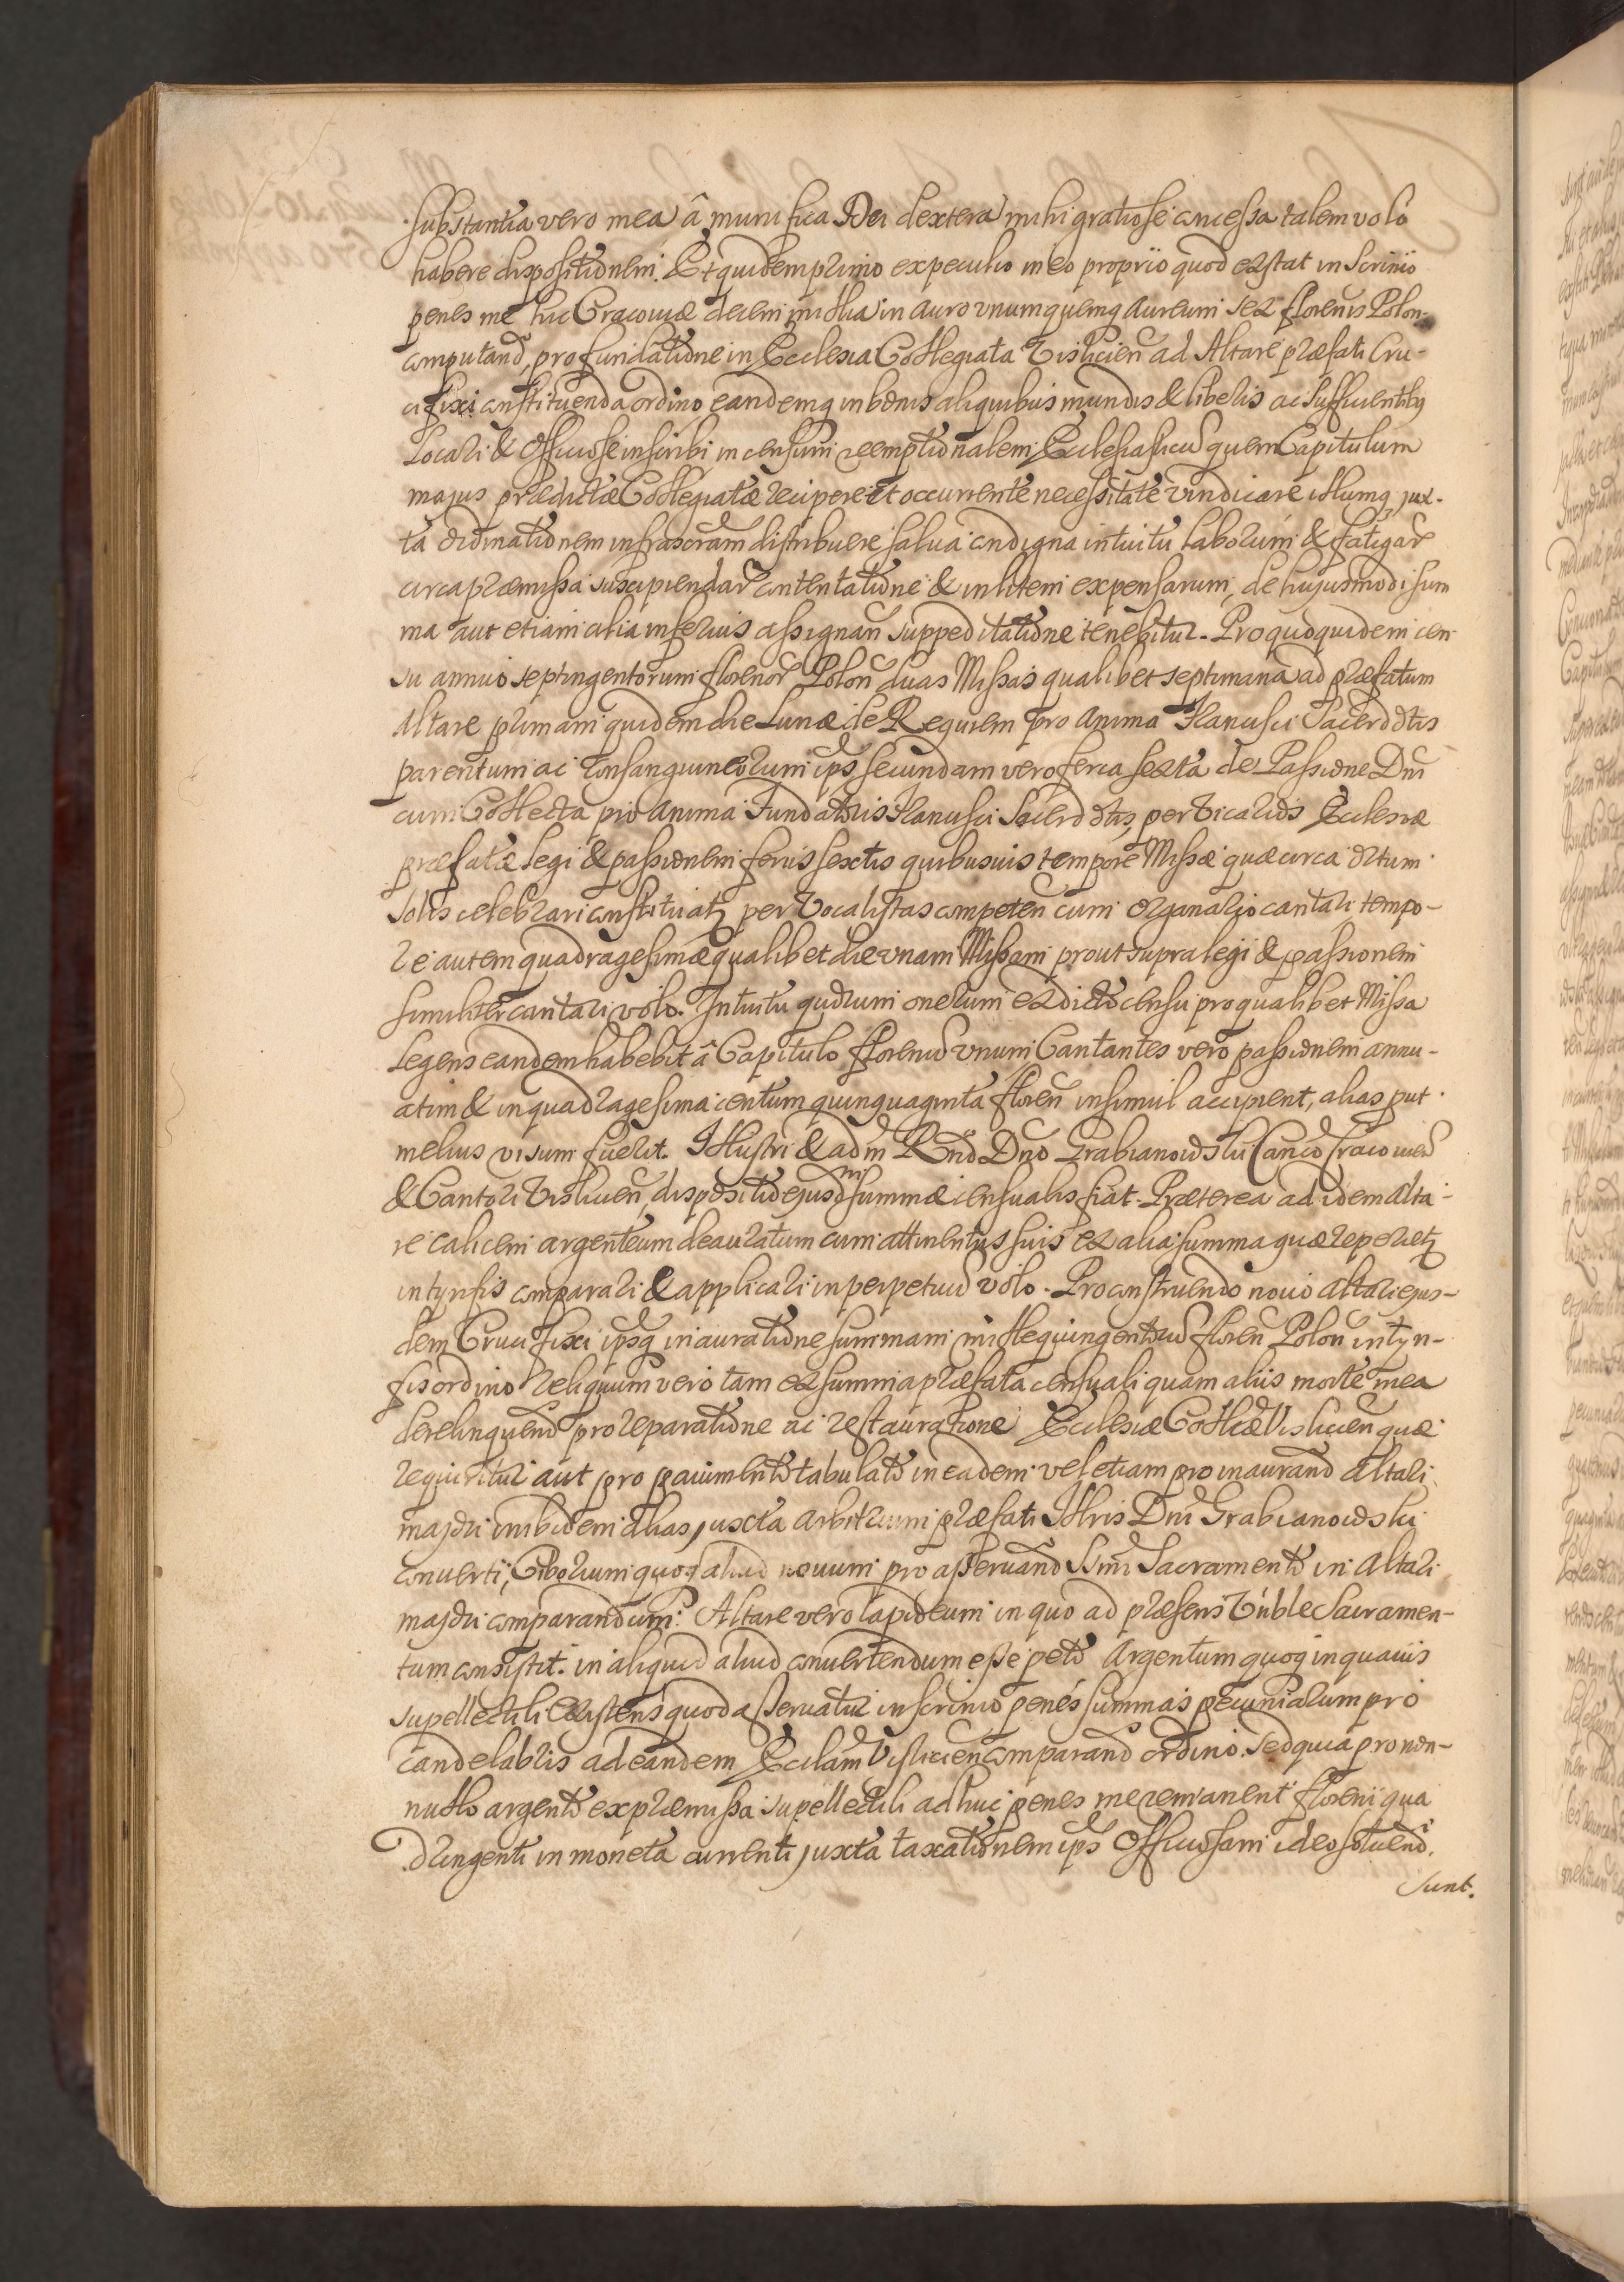 Substantia vero mea â munifica Dei dextera mihi gratiose concessa talem volo
habere dispositionem. Et quidem primo ex peculio meo proprio quod exstat in Scrinio
penes me hic Cracoviæ decem millia in auro unumquemq aureum sex florenis Polon
computand, pro fundatione in Ecclesia Collegiata Vislicien ad Altare præfati Cru-
cifixi constituenda ordino eandemq in bonis aliquibus mundis & liberis ac sufficientibq
Locari & Officiose inscribi in censum reemptionalem Ecclesiasticu quem Capitulum
majus prædictæ Collegiatæ recipere et occurrente necessitate vindicare illumq jux-
ta ordinationem infrascram distribuere salva condigna intuitu laborum & fatigar
circa præmissa suscipiendar contentatione & in litem expensarum, de hujusmodi sum
ma aut etiam alia inferius assignan suppeditatione tenebitur. Pro quoquidem cen
su annuo septingentorum florenor Polon duas Missas qualibet septimana ad præfatum
Altare primam quidem die Lunæ de Requiem pro anima Francisci Sacerdotis
parentum ac Consanguineorum ips secundam vero feria sexta de Passione Dni
cum Collecta pro anima Fundatoris Francisci Sacerdotis, per Vicarios Ecclesiæ
præfatæ legi & passionem feriis sextis quibusvis tempore Missæ quæ circa ortum
solis celebrari constituatq per Vocalistas competen cum organario cantari tempo-
re autem quadragesimæ qualibet die unam Missam prout supra legi & passionem
similiter cantari volo. Intuitu quorum onerum ex dicto censu pro qualibet Missa
Legens eandem habebit â Capitulo florenu unum Cantantes vero passionem annu-
atim & in quadragesima centum quinquaginta floren insimul accipient, alias put
melius visum fuerit. Illustri & adm Rndo Dno Grabianowski Canco Cracovien
& Cantori Vislicien, dispositio ejusdm summæ censualis fiat. Præterea ad idem Alta-
re calicem argenteum deauratum cum attinentiis suis ex alia summa quæ reperietq
in tynfis comparari & applicari in perpetuu volo. Pro construendo novo Altari ejus-
dem Crucifixi ipsq inauratione summam mille quingentoru floren Polon in tyn-
fis ordino reliquum vero tam ex summa præfata censuali quam aliis morte mea
derelinquend pro reparatione ac restauratione Ecclesiæ Collæ Vislicien quæ
requiritur aut pro pavimento tabulato in eadem vel etiam pro inaurand Altari
majori inibidem alias juxta arbitrium præfati Illris Dni Grabianowski
converti, Ciborium quoq aliud novum pro asservand SSmi Sacramento in Altari
majori comparandum. Altare vero lapideum in quo ad præsens Vnble Sacramen-
tum consistit. in aliquid aliud convertendum esse peto Argentum quoq in quavis
supellectili existens quod asservatur in scrinio penes summas pecuniarum pro
candelabris ad eandem Ecclam Vislicien comparand ordino. Sed quia pro non-
nullo argento ex præmissa supellectili adhuc penes me remanent florenii qua
dringenti in moneta currenti juxta taxationem ips Officiosam ideo solvend.
sunt.